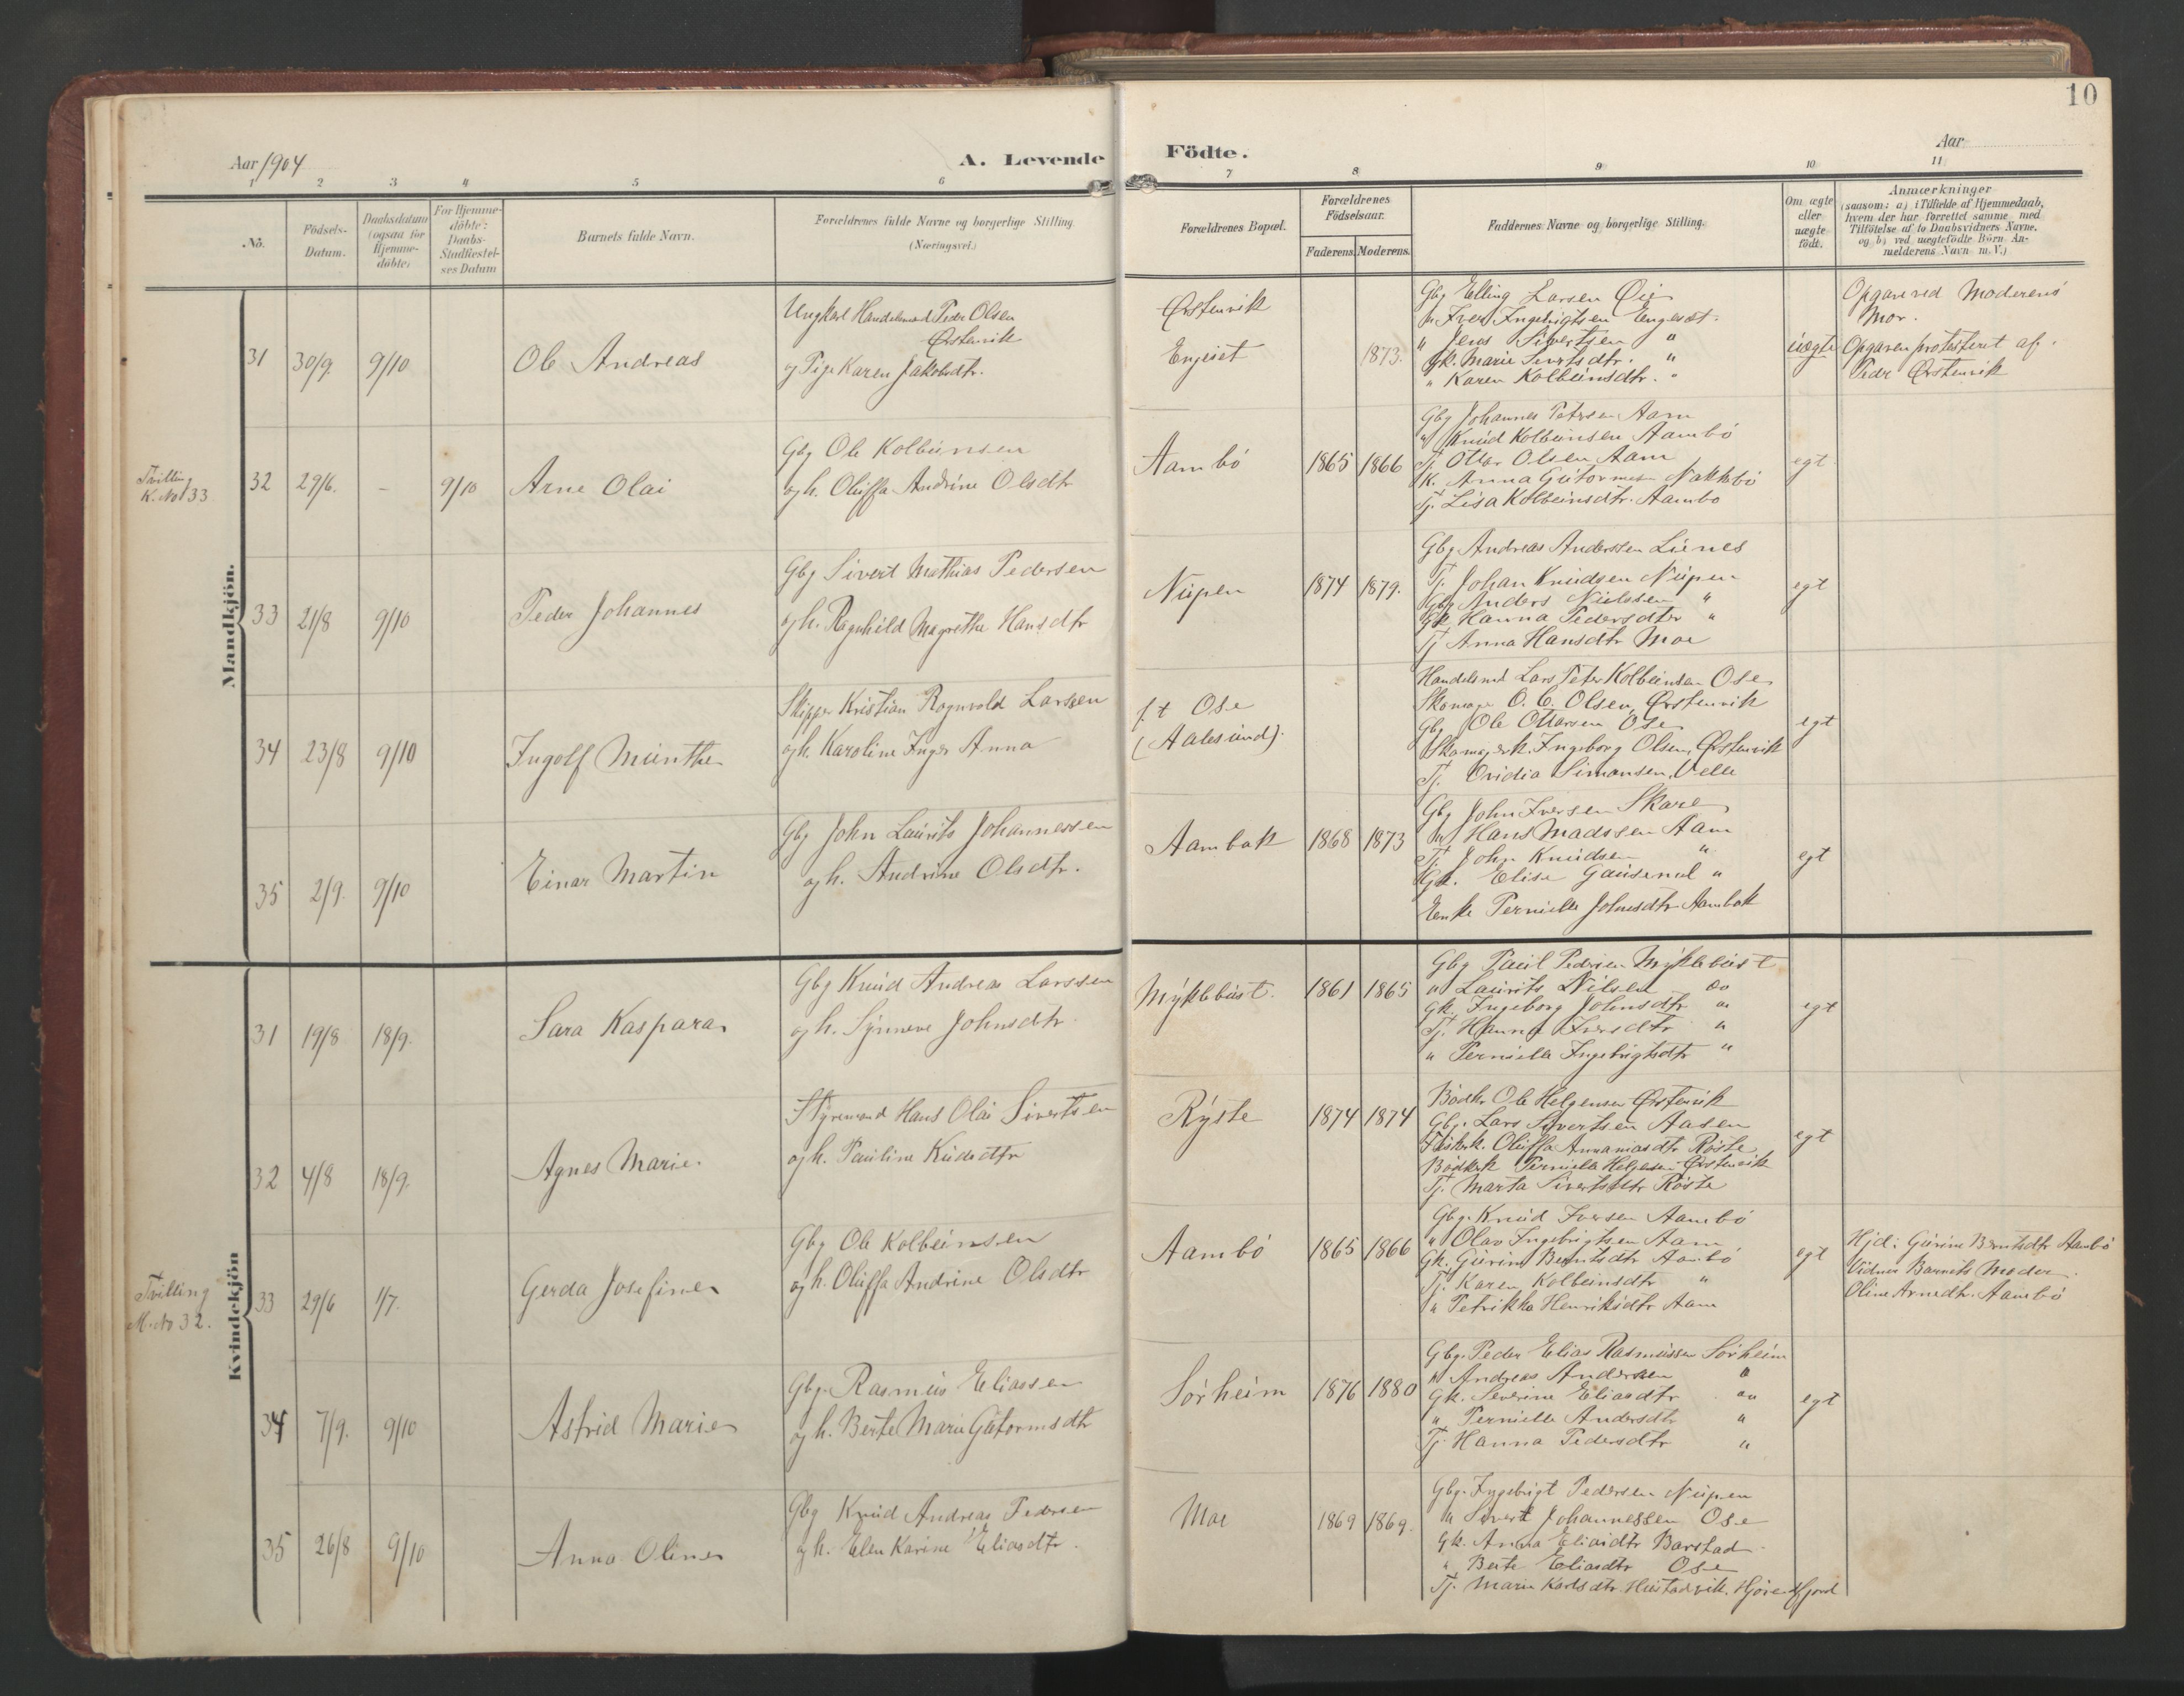 10
Aar 1904
A. Levende Födte.
Aar
1 2 3 4 5 6 7 8 9 10 11
No.
Födsels-
Datum.
Daabsdatum
(ogsaa for
Hjemme-
døbte)
For Hjemme-
döbte:
Daabs-
Stadfæstel-
ses Datum
Barnets fulde Navn.
Forældrenes fulde Navne og borgerlige Stilling
(Næringsvei.)
Forældrenes Bopæl.
Forældrenes
Födselsaar.
Faderens Moderens.
Faddernes Navne og borgerlige Stilling.
Om ægte
eller
uægte
födt.
Anmærkninger
(saasom: a) i Tilfælde af Hjemmedaab,
hvem der har forrettet samme med
Tilföielse af to Daabsvidners Navne.
og b) ved uægtefödte Börn An-
melderens Navn m. V.)
Mandkjön.
31 30/9. 9/10 Ole Andreas
Ungkarl Handelsmand Peder Olsen
Ørstenvik
og Pige Karen Jakobsdtr.
Ørstenvik
Engeset
1873.
Gbg Elling Larsen Øie
" Iver Ingebrigtsen Engeset.
" Jens Sivertsen "
Gk. Marie Sivertsdtr. "
" Karen Kolbeinsdtr. "
uægte
Opgave ved Moderens
Mor.
Opgaven protesteret af
Peder Ørstenvik
Tvilling
K. No 33
32 29/6. - 9/10 Arne Olai
Gbg Ole Kolbeinsen
og h. Oluffa Andrine Olsdtr
Aambö
1865 1866
Gbg Johannes Petersen Aam
" Knud Kolbeinsen Aambö
Tj. Ottar Olsen Aam
K. Anna Gutormsen
Tj. Lisa Kolbeinsdtr. Aambö
egt
33 21/8 9/10 Peder Johannes
Gbg Sivert Mathias Pedersen
og h. Ragnhild Magrethe Hansdtr
Nupen
1874 1879.
Gbg Andreas Anderssen
Tj. Johan Knudsen Nupen
Gbg Anders Nielssen "
Gk Hanna Pedersdtr "
Tj Anna Hansdtr Moe
egt
34 23/8 9/10 Ingolf Munthe
Skipper Kristian Ragnvald Larssen
og h. Karoline Inger Anna
f. t Ose
(Aalesund).
Handelsmd Lars Peter Kolbeinsen Ose
Skomager O. C. Olsen, Ørstenvik
Gbg Ole Ottarsen Ose
Skomagerk. Ingeborg Olsen, Ørstenvik
Tj. Ovidia Simonsen, Velle
egt
35 2/9. 9/10 Einar Martin
Gbg John Laurits Johannessen
og h. Andrine Olsdtr.
Aambak
1868 1873
Gbg John Iversen Skare
" Hans Madssen Aam
Tj. John Knudsen "
Gk. Elise Gausenel "
Enke Pernille Johnsdtr Aambak
egt
Kvindekjön
31 19/8 18/9. Sara Kaspara
Gbg Knud Andreas Larssen
og h. Synneve Johnsdtr
Myklebust.
1861 1865
Gbg Paul Pedersen Myklebust
" Laurits Nilsen Do
Gk. Ingeborg Johnsdtr "
Tj. Hanna Iversdtr "
" Pernille Ingebrigtsdtr "
egt
32 4/8 18/9. Agnes Marie
Styrmand Hans Olai Sivertsen
og h. Pauline Kudsdtr
Ryste
1874 1874
Bödker Ole Helgensen Ørstenvik
Gbg. Lars Sivertsen Aasen
Fæsterk. Oluffa Annaniasdtr Röste
Bödkerk Pernille Helgesen Ørstenvik
Tj. Marta Sivertsdtr Röste
egt
Tvilling
M. No 32.
33 29/6 1/7. Gerda Josefine
Gbg Ole Kolbeinsen
og h. Oluffa Andrine Olsdtr
Aambö
1865 1866
Gbg. Knud Iversen Aambö
" Olav Ingebrigtsen Aam
Gk. Gurine Berntsdtr Aambö
Tj. Karen Kolbeinsdtr "
" Petrikka Henriksdtr Aam
egt
Hjd: Gurine Berntsdtr Aambö
Vidner Barnets Moder.
Oline Arnedtr. Aambö
34 7/9. 9/10 Astrid Marie
Gbg. Rasmus Eliassen
og h. Berte Marie Gutormsdtr
Sörheim
1876 1880
Gbg. Peder Elias Rasmussen Sörheim
" Andreas Andersen "
Gk. Severine Eliasdtr "
" Pernille Andersdtr "
Tj. Hanna Pedersdtr "
egt
35 26/8 9/10 Anna Oline
Gbg Knud Andreas Pedersen
og h. Elen Karine Eliasdtr.
Moe
1869 1869.
Gbg. Ingebrigt Pedersen Nupen
" Sivert Johannessen Ose
Gk. Anna Eliasdtr Barstad
" Berte Eliasdtr Ose
Tj. Marie Karlsdtr Hustadvik. Hjörendfjord